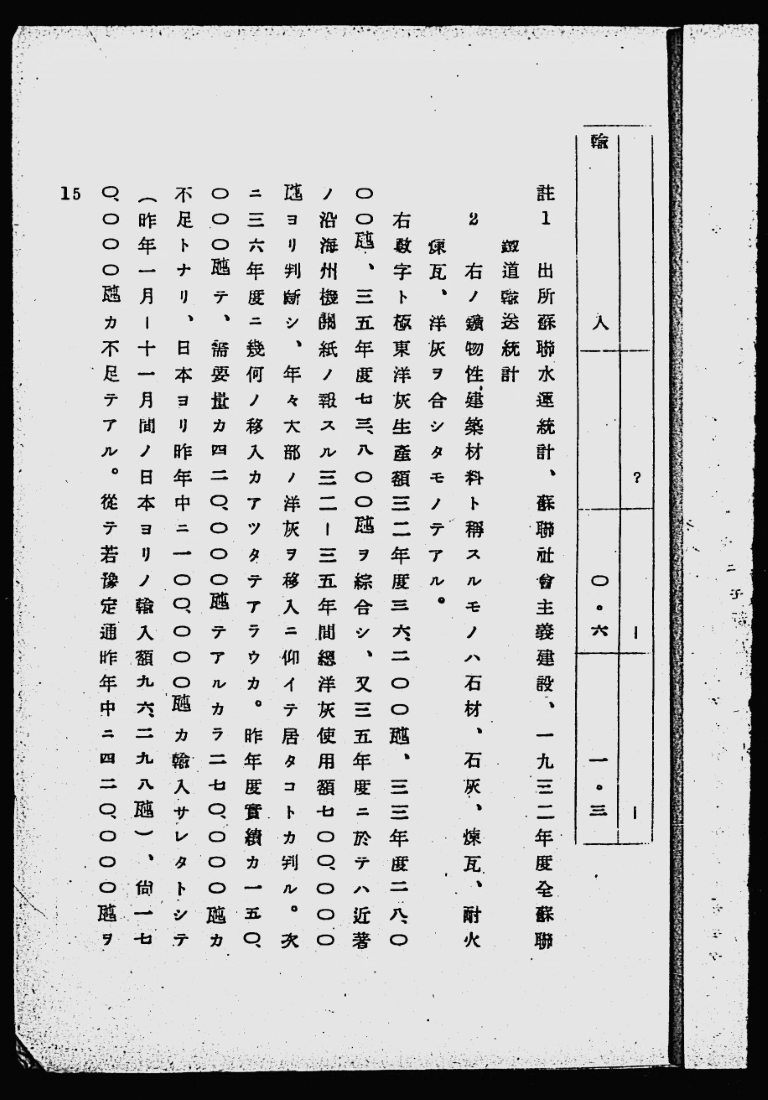 ? ｜ ｜
輸入 〇。六 一。三
註1 出所蘇聯水運統計、蘇聯社會主義建設、一九三二年度全蘇聯
鐵道輸送統計
2 右ノ鑛物性建築材料ト稱スルモノハ石材、石灰、煉瓦、耐火
煉瓦、洋灰ヲ合シタモノテアル。
右數字ト極東洋灰生產額三二年度三六、二〇〇瓲、三三年度二八、〇
〇〇瓲、三五年度七三、八〇〇瓲ヲ綜合シ、又三五年度ニ於テハ近著
ノ沿海州機關紙ノ報スル三二ー三五年間總洋灰使用額七〇〇、〇〇〇
瓲ヨリ判斷シ、年々大部ノ洋灰ヲ移入ニ仰イテ居タコトカ判ル。次
ニ三六年度ニ幾何ノ移入カアツタテアラウカ。昨年度實績カ一五〇、
〇〇〇瓲テ、需要量カ四二〇、〇〇〇瓲テアルカラ二七〇、〇〇〇瓲カ
不足トナリ、日本ヨリ昨年中ニ一〇〇、〇〇〇瓲カ輸入サレタトシテ
(昨年一月ー十一月間ノ日本ヨリノ輸入額九六、二九八瓲)、尙一七
〇、〇〇〇瓲カ不足テアル。從テ若豫定通昨年中ニ四二〇、〇〇〇瓲ヲ
15